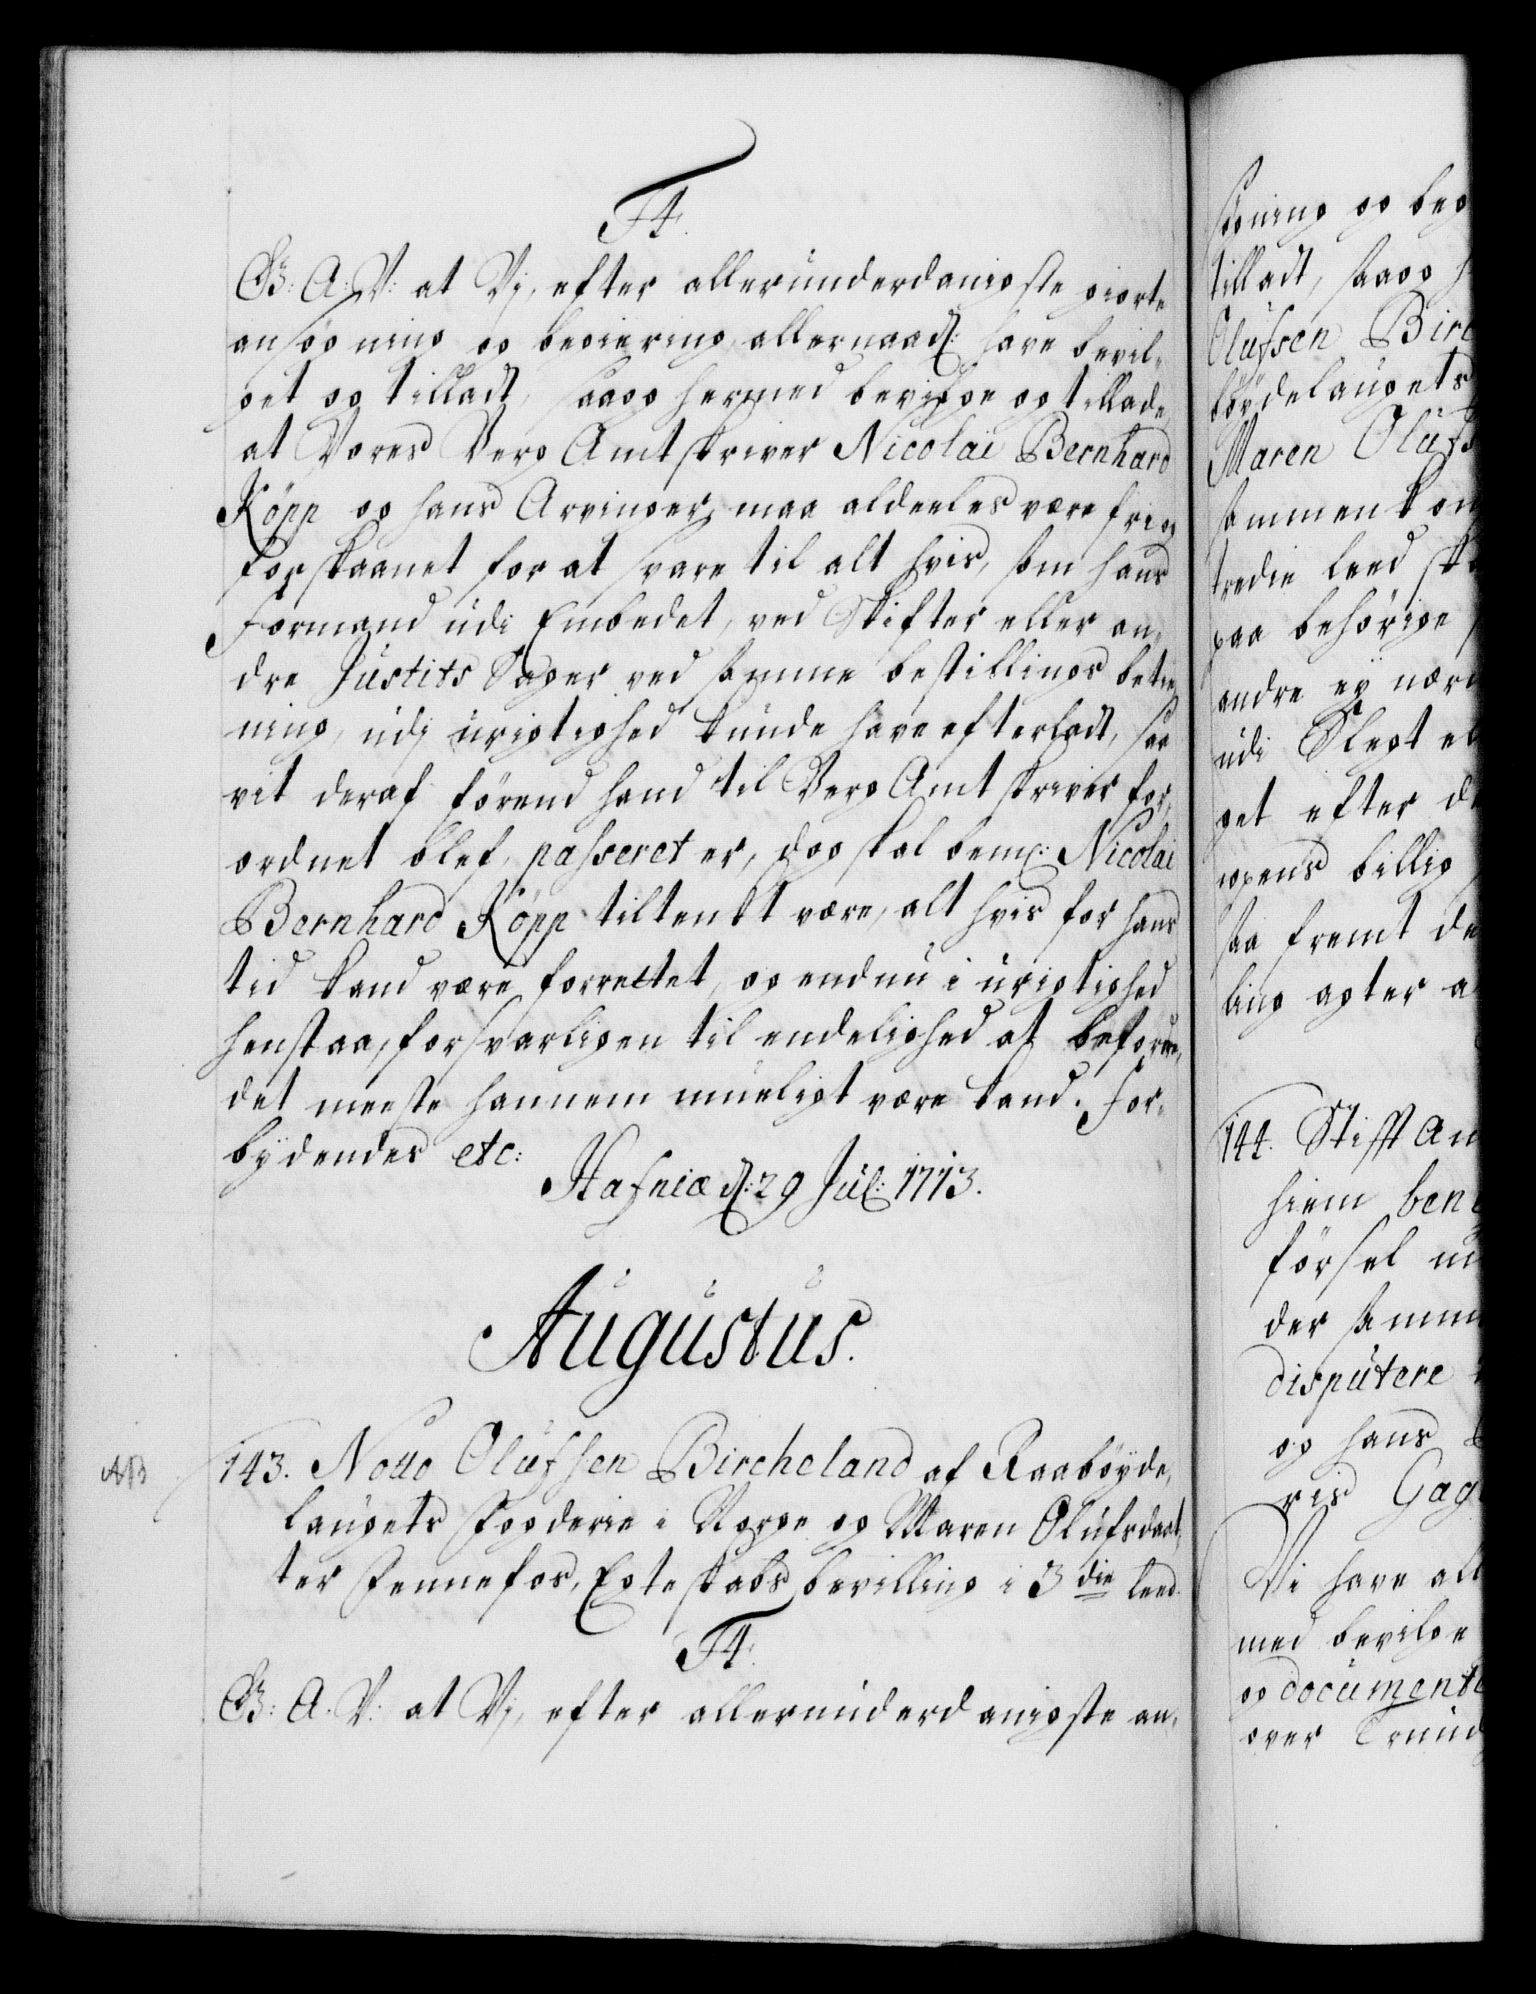 F4.
G: A: V: at Vj, efter allerunderdanigste giorte
ansøgning og begiering, allernaad: have bevil-
get og tilladt, saag hermed bevilge og tillade,
at Vores Berg Amtskriver Nicolai Bernhard
Köpp og hans Arvinger, maa aldeeles være frie og
forskaanet for at svare til alt hvis, som hans
Formand udi Embedet, ved Skifter eller an,
dre Justits Sager ved samme bestillings betie
ning, udj urigtighed kunde have efterladt, saa
vit deraf førend hand til Berg Amtskriver for,
ordnet blef, passeret er, dog skal bemt: Nicolai
Bernhard Köpp tiltenkt være, alt hvis for hans
tid kand være forrettet, og endnu i urigtighed
henstaa, forsvarligen til endelighed at befordre,
det meeste hannem mueligt være kand. For-
bydendes etc:
Hafniæ d: 29 Jul: 1713.
Augustus.
AB
143. Notto Olufsen Bircheland af Raabøyde,
laugets Fogderie i Norge og Maren Olufsdaat,
ter Fennefos, Egteskabs bevilling i 3die leed.
F4.
G: A. V: at Vj, efter allerunderdanigste an,
søgning og beg
tilladt, saag h
Olufsen Birc
bøydelaugets
Maren Olufs
sammen kom
tredie leed sk
paa behørige
andre ey nære
udi Slegt el
get efter d
ugens billig
saa fremt de
ling agter a
144. Stifft Am
hiem ben
førsel m
der samm
disputere
og hans
ris Gag
Vi have all
med bevilge
og documente
over Trund